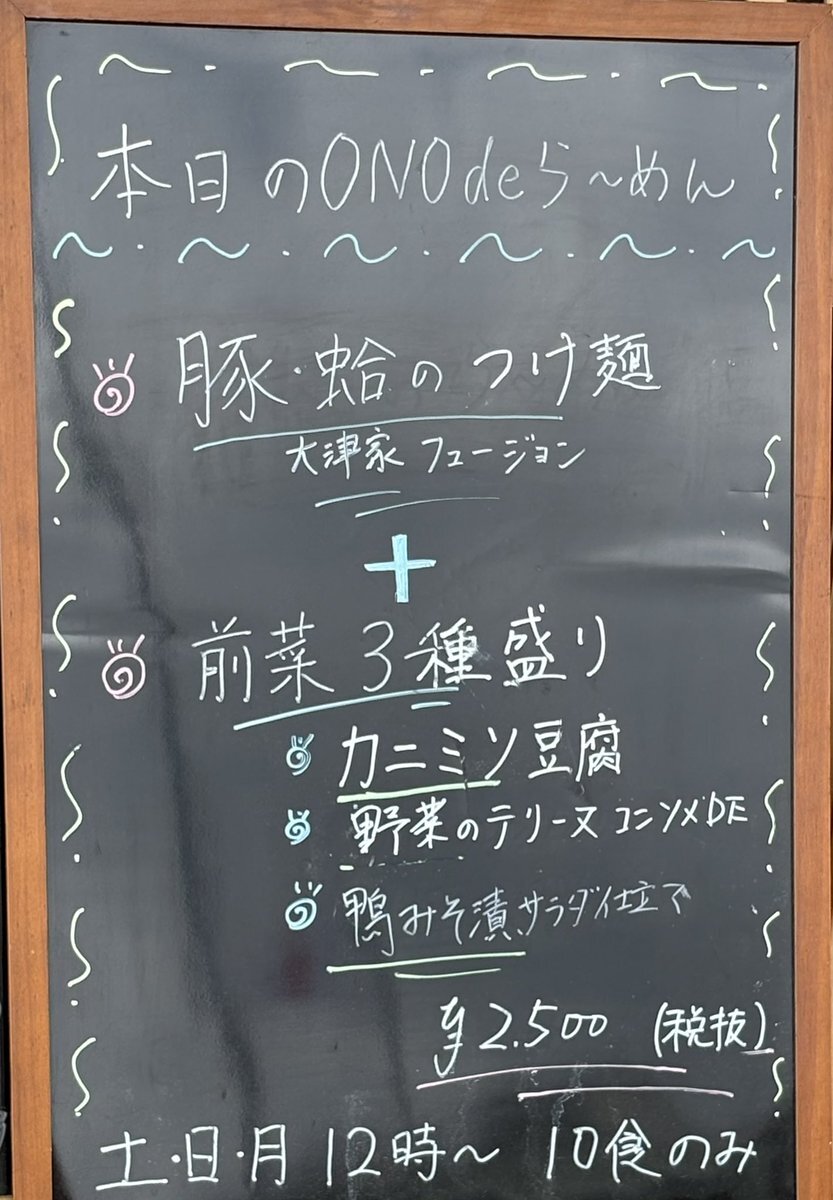 本日のONOdeら〜めん
豚・蛤のつけ麺
大津家 フュージョン
+
前菜3種盛り
カニミソ豆腐
野菜のテリーヌ コンソメDE
鴨みそ漬サラダ仕立て
¥2.500 (税抜)
土・日・月 12時〜 10食のみ